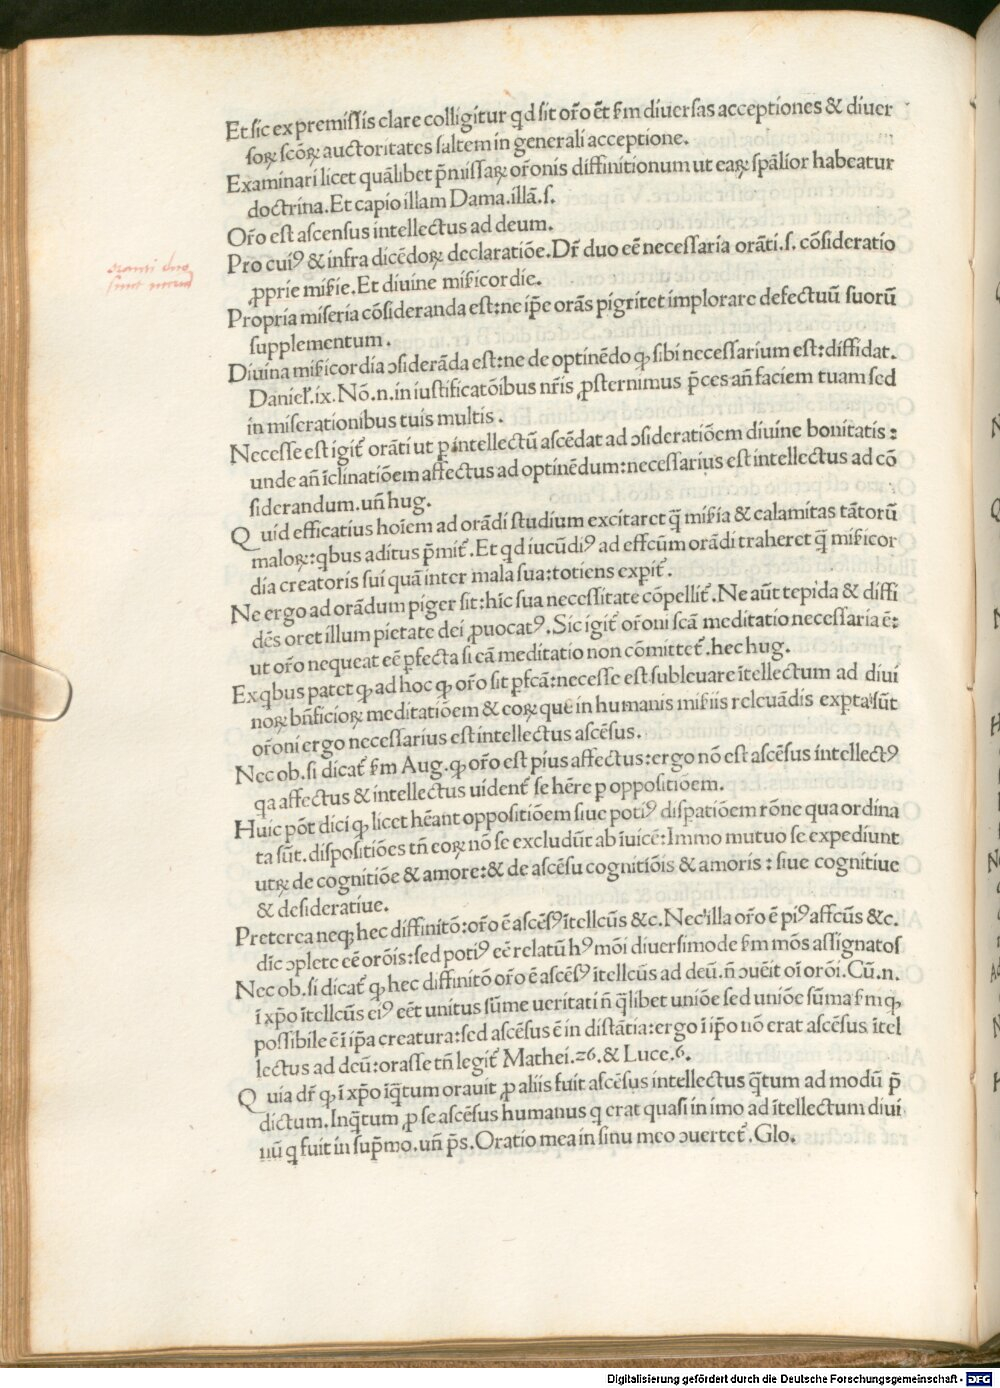 Et sic ex premissis clare colligitur qd sit or̃o et̃ ẜm diuersas acceptiones & diuer
soꝝ scõꝝ auctoritates saltem in generali acceptione.
Examinari licet quãlibet p̃missaꝝ or̃onis diffinitionum ut eaꝝ sp̃alior habeatur
doctrina. Et capio illam Dama. illã. s.
Or̃o est ascensus intellectus ad deum.
Pro cuiꝰ & infra dicẽdoꝝ declaratiõe. Dr̃ duo eẽ necessaria orãti. s. cõsideratio
ꝓprie miẜie. Et diuine miẜicordie.
oranti duo
sunt
Propria miseria cõsideranda est: ne ip̃e orãs pigritet implorare defectuũ suorũ
supplementum.
Diuina miẜicordia ↄsiderãda est: ne de optinẽdo ꝙ sibi necessarium est: diffidat.
Daniel̃. ix. Nõ. n. in iustificatõibus nr̃is ꝓsternimus p̃ces añ faciem tuam sed
in miserationibus tuis multis.
Necesse est igit̃ orãti ut ꝑ intellectũ ascẽdat ad ↄsideratiõem diuine bonitatis:
unde añ ĩclinatiõem affectus ad optinẽdum: necessarius est intellectus ad cõ
siderandum. uñ hug.
Quid efficatius hoĩem ad orãdi studium excitaret q̃ miẜia & calamitas tãtorũ
maloꝝ: qbus aditus p̃mit̃. Et qd iucũdiꝰ ad effcũm orãdi traheret q̃ miẜicor
dia creatoris sui quã inter mala sua: totiens expit̃.
Ne ergo ad orãdum piger sit: hĩc sua necessitate cõpellit̃. Ne aũt tepida & diffi
dẽs oret illum pietate dei ꝓuocatꝰ. Sic igit̃ or̃oni scã meditatio necessaria ẽ:
ut or̃o nequeat eẽ ꝑfecta si eã meditatio non cõmittet̃. hec hug.
Ex qbus patet ꝙ ad hoc ꝙ or̃o sit ꝑfcã: necesse est subleuare ĩtellectum ad diui
noꝝ bñficioꝝ meditatiõem & eoꝝ que in humanis miẜiis releuãdis expta sũt
or̃oni ergo necessarius est intellectus ascẽsus.
Nec ob. si dicat̃ ẜm Aug. ꝙ or̃o est pius affectus: ergo nõ est ascẽsus intellectꝰ
qa affectus & intellectus uident̃ se hẽre ꝑ oppositiõem.
Huic põt dici ꝙ licet hẽant oppositiõem siue potiꝰ dispatiõem rõne qua ordina
ta sũt. dispositiões tñ eoꝝ nõ se excludũt ab ĩuicẽ: Immo mutuo se expediunt
utꝝ de cognitiõe & amore: & de ascẽsu cognitiõis & amoris: siue cognitiue
& desideratiue.
Preterea neqꝫ hec diffinitõ: or̃o ẽ ascẽsꝰ ĩtellcũs &c. Nec illa or̃o ẽ piꝰ affcũs &c.
dĩc ↄplete eẽ orõis: sed potiꝰ eẽ relatũ hꝰ mõi diuersimode ẜm mõs assignatos
Nec ob. si dicat̃ ꝙ hec diffinitõ or̃o ẽ ascẽsꝰ ĩtellcũs ad deũ. ñ ↄuẽit oĩ orõi. Cũ. n.
ĩ xp̃o ĩtellcũs eiꝰ eẽt unitus sũme ueritati ñ q̃libet uniõe sed uniõe sũma ẜm ꝙ
possibile ẽ ĩ ip̃a creatura: sed ascẽsus ẽ in distãtia: ergo ĩ ip̃o nõ erat ascẽsus ĩtel
lectus ad deũ: orasse tñ legit̃ Mathei. 26. & Luce. 6.
Quia dr̃ ꝙ ĩ xp̃o ĩq̃tum orauit ꝓ aliis fuit ascẽsus intellectus q̃tum ad modũ p̃
dictum. Inq̃tum ꝓ se ascẽsus humanus q erat quasi in imo ad ĩtellectum diui
nũ q fuit in sup̃mo. uñ p̃s. Oratio mea in sinu meo ↄuertet̃. Glo.
Digitalisierung gefördert durch die Deutsche Forschungsgemeinschaft - DFG